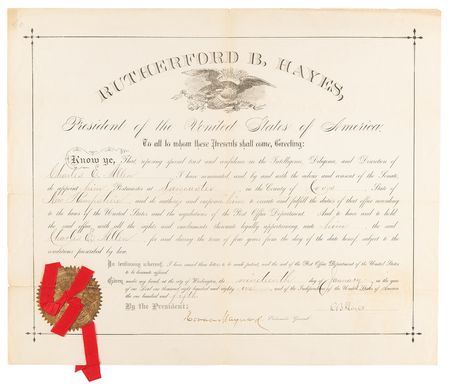 RUTHERFORD B. HAYES,
President of the United States of America,
To all to whom these Presents shall come, Greeting:
Know ye, That reposing special trust and confidence in the Intelligence, Diligence, and Discretion of
Charles E. Allen I have nominated, and by and with the advice and consent of the Senate,
do appoint him Postmaster at Lancaster, in the County of Coos, State of
New Hampshire, and do authorize and empower him to execute and fulfil the duties of that office according
to the laws of the United States and the regulations of the Post Office Department. And to have and to hold
the said office, with all the rights and emoluments thereunto legally appertaining unto him, the said
Charles E. Allen for and during the term of four years from the day of the date hereof, subject to the
conditions prescribed by law.
In testimony whereof, I have caused these letters to be made patent, and the seal of the Post Office Department of the United States
to be hereunto affixed.
Given under my hand, at the city of Washington, the day of January, in the year
of our Lord one thousand eight hundred and eighty and of the Independence of the United States of America
the one hundred and fifth.
By the President:
Horace Maynard Postmaster General.
R B Hayes